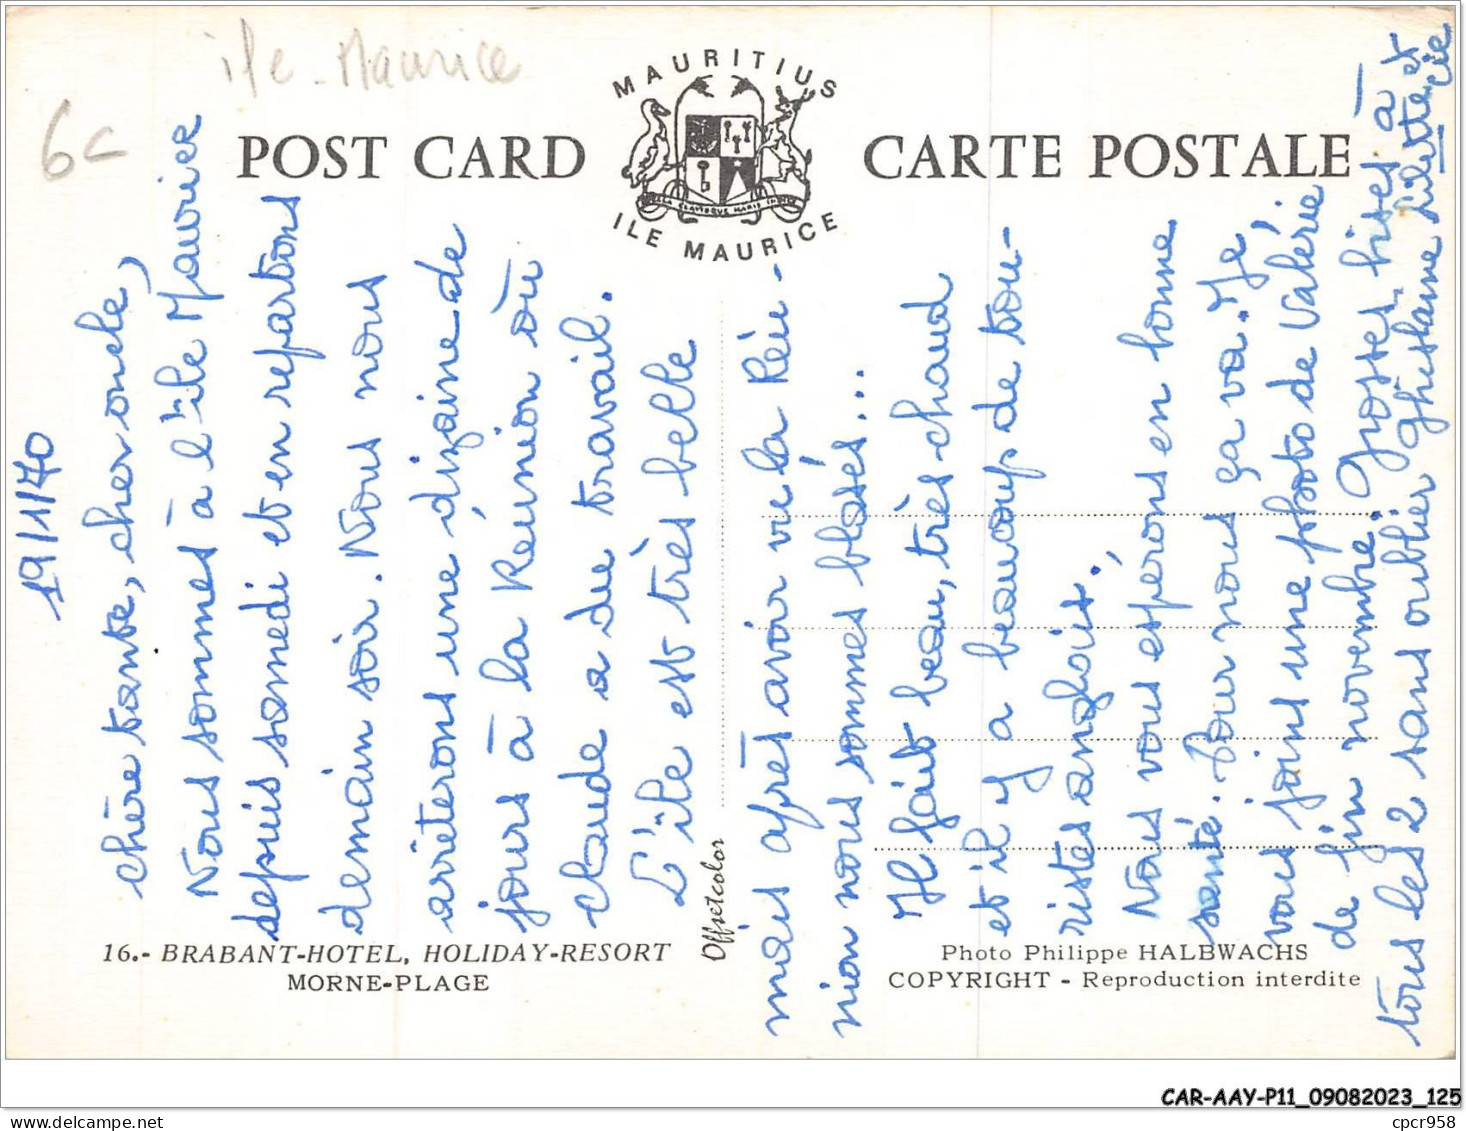 ile - Maurice
6c
MAURITIUS
POST CARD
CARTE POSTALE
ILE MAURICE
19/1/70
chère tante, cher oncle,
Nous sommes à l'île Maurice
depuis samedi et en repartons
demain soir. Nous nous
arrêterons une dizaine de
jours à la Réunion où
Claude a du travail.
L'île est très belle
mais après avoir vu la Réu-
nion nous sommes blasés...
Il fait beau, très chaud
et il y a beaucoup de tou-
ristes anglais.
Nous vous espérons en bonne
santé. Pour nous ça va. Je
vous joins une photo de Valérie
de fin novembre. Grosses bises à
tous les 2 sans oublier Ghislaine, Lilette et
Offsetcolor
16.- BRABANT-HOTEL, HOLIDAY-RESORT
MORNE-PLAGE
Photo Philippe HALBWACHS
COPYRIGHT - Reproduction interdite
CAR-AAY-P11_09082023_125
cpcr958